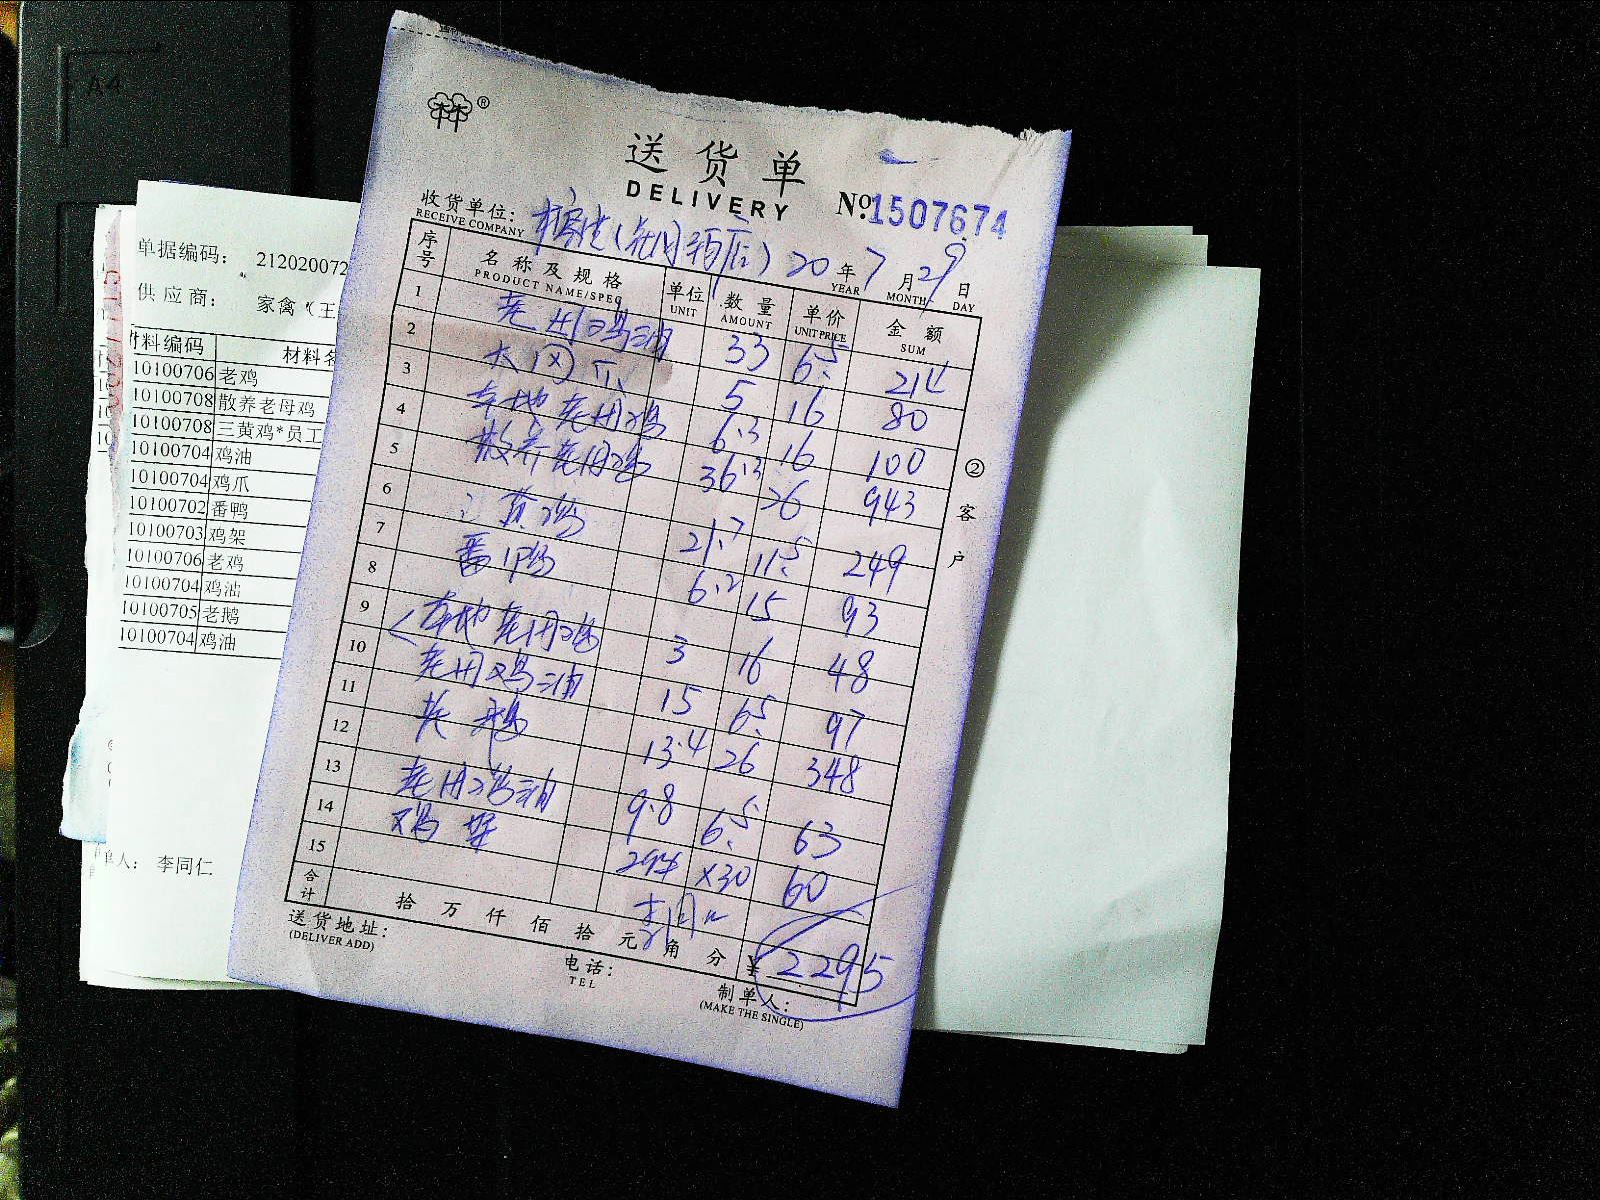 送货单
DELIVERY
No 1507674
收货单位:
RECEIVE COMPANY
20年7月29日
YEAR MONTH DAY
序号 名称及规格 单位 数量 单价 金额
PRODUCT NAME/SPEC UNIT AMOUNT UNIT PRICE SUM
1 老母鸡油 33 6.5 214
2 大凤爪 5 16 80
3 本地老母鸡 6.3 16 100
4 散养老母鸡 36.3 26 943
5
6 三黄鸡 21.7 11.5 249
7 番鸭 6.2 15 93
8
9 本地老母鸡 3 16 48
10 老母鸡油 15 6.5 97
11 老鹅 13.4 26 348
12
13 老母鸡油 9.8 6.5 63
14 鸡架 ×30 60
15
合计 拾万仟佰拾元角分 ¥2295
送货地址:
(DELIVER ADD)
电话:
TEL
制单人:
(MAKE THE SINGLE)
②客户
单据编码: 212020072
供应商: 家禽*(王
材料编码 材料名
10100706 老鸡
10100708 散养老母鸡
10100708 三黄鸡*员工
10100704 鸡油
10100704 鸡爪
10100702 番鸭
10100703 鸡架
10100706 老鸡
10100704 鸡油
10100705 老鹅
10100704 鸡油
单人: 李同仁
A4